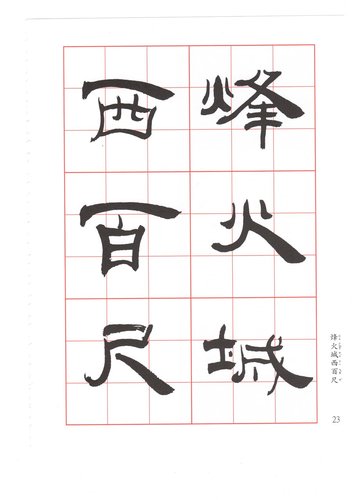 烽火城
西百尺
烽火城西百尺
23